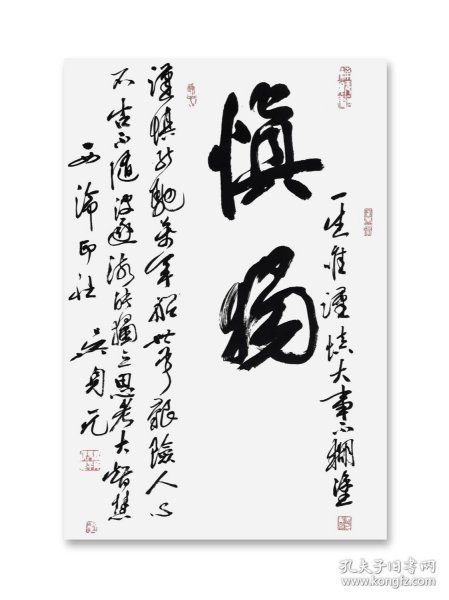 一生唯謹慎大事不糊塗
慎獨
謹慎能馳萬年船世艱險人心
不古不隨波逐流能獨立思考大智慧
西泠印社 吴身元
孔夫子旧书网
www.kongfz.com